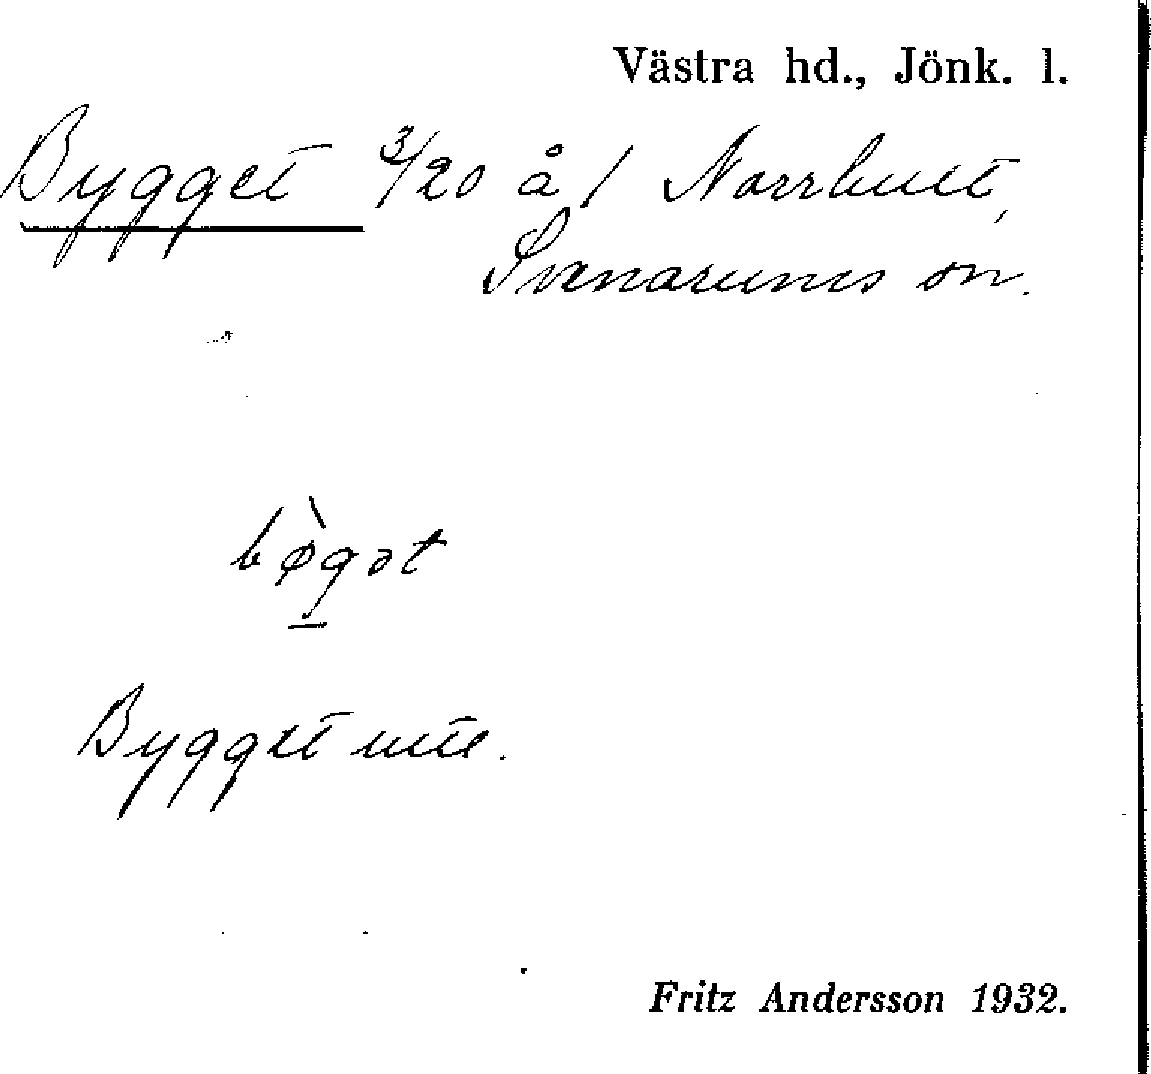 Västra hd., Jönk. l.
Bygget 3/20 å 1 Norrhult,
Svenarums sn.
bø̀gət
Bygget ute.
Fritz Andersson 1932.